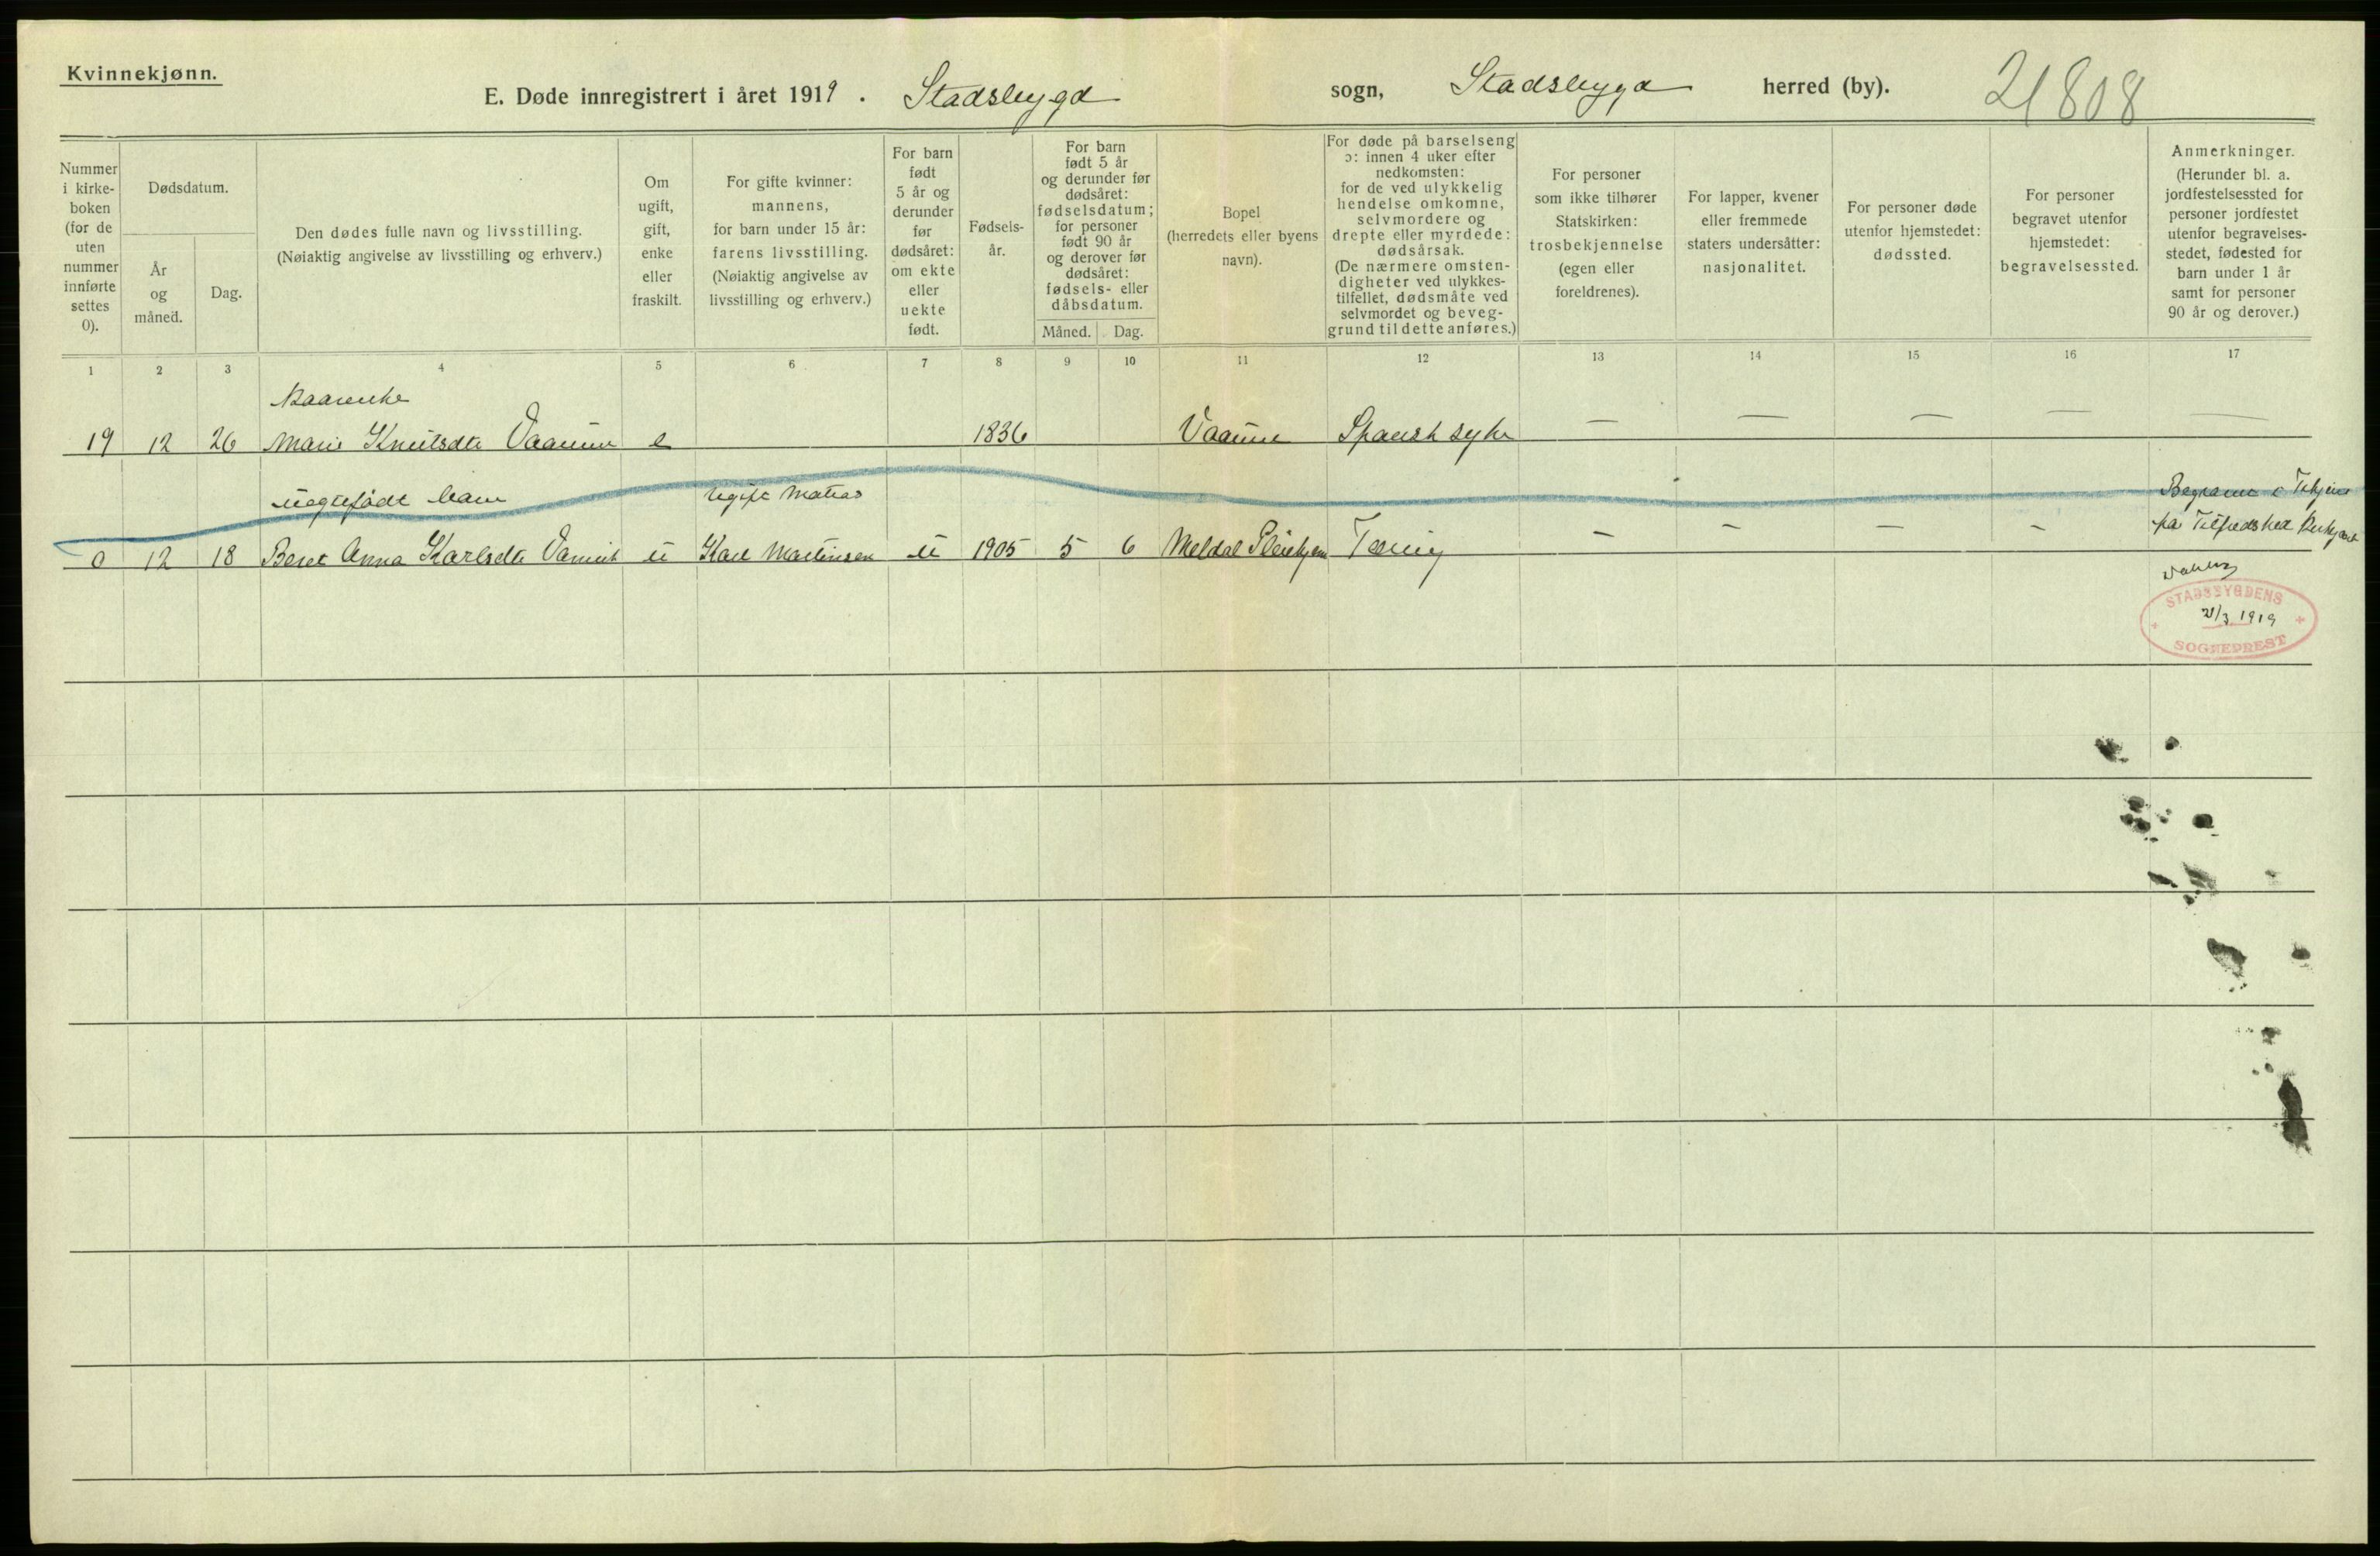 Kvinnekjønn.
E. Døde innregistrert i året 1919. Stadsbygd sogn, Stadsbygd herred (by). 21808
Nummer i kirke-boken (for de uten nummer innførte settes 0).
Dødsdatum.
År og måned.
Dag.
Den dødes fulle navn og livsstilling.
(Nøiaktig angivelse av livsstilling og erhverv.)
Om ugift, gift, enke eller fraskilt.
For gifte kvinner: mannens, for barn under 15 år: farens livsstilling. (Nøiaktig angivelse av livsstilling og erhverv.)
For barn født 5 år og derunder før dødsåret: om ekte eller uekte født.
Fødsels-år.
For barn født 5 år og derunder før dødsåret: fødselsdatum; for personer født 90 år og derover før dødsåret: fødsels- eller dåbsdatum.
Måned. Dag.
Bopel (herredets eller byens navn).
For døde på barselseng ɔ: innen 4 uker efter nedkomsten: for de ved ulykkelig hendelse omkomne, selvmordere og drepte eller myrdede: dødsårsak. (De nærmere omsten-digheter ved ulykkes-tilfellet, dødsmåte ved selvmordet og beveg-grund til dette anføres.)
For personer som ikke tilhører Statskirken: trosbekjennelse (egen eller foreldrenes).
For lapper, kvener eller fremmede staters undersåtter: nasjonalitet.
For personer døde utenfor hjemstedet: dødssted.
For personer begravet utenfor hjemstedet: begravelsessted.
Anmerkninger. (Herunder bl. a. jordfestelsessted for personer jordfestet utenfor begravelses-stedet, fødested for barn under 1 år samt for personer 90 år og derover.)
1 2 3 4 5 6 7 8 9 10 11 12 13 14 15 16 17
Kaarenke
19 12 26 Marie Knutsdtr e 1836 Spansk syke — — — — —
uegtefødt barn ugift
0 12 18 Beret Anna Karlsdtr u Karl Martinsen u 1905 5 6 Meldal Tæring — — — —
på Tilfredshet
STADSBYGDENS
21/3 1919
SOGNEPREST